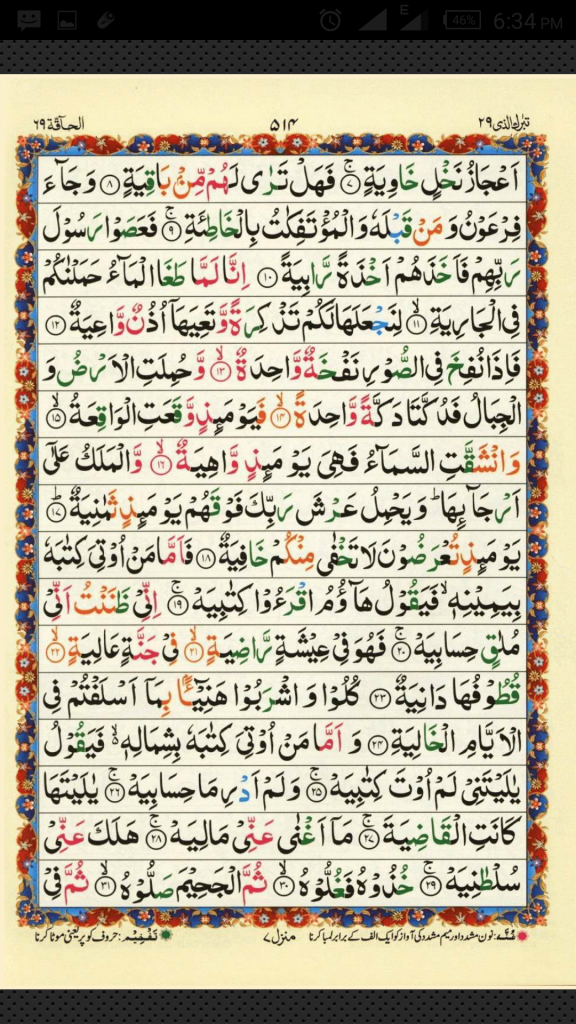 E 46% 6:34 PM
تبٰرك الذى ٢٩ ٥١٤ الحآقة ٦٩
اَعْجَازُ نَخْلٍ خَاوِيَةٍ ۚ‏﴿٧﴾ فَهَلْ تَرٰى لَهُمْ مِّنْ بَاقِيَةٍ ﴿٨﴾ وَجَآءَ
فِرْعَوْنُ وَ مَنْ قَبْلَهٗ وَالْمُؤْتَفِكٰتُ بِالْخَاطِئَةِ ۚ‏﴿٩﴾ فَعَصَوْا رَسُوْلَ
رَبِّهِمْ فَاَخَذَهُمْ اَخْذَةً رَّابِيَةً ﴿١٠﴾ اِنَّا لَمَّا طَغَا الْمَآءُ حَمَلْنٰكُمْ
فِى الْجَارِيَةِ ۙ‏﴿١١﴾ لِنَجْعَلَهَا لَكُمْ تَذْكِرَةً وَّتَعِيَهَاۤ اُذُنٌ وَّاعِيَةٌ ﴿١٢﴾
فَاِذَا نُفِخَ فِى الصُّوْرِ نَفْخَةٌ وَّاحِدَةٌ ۙ‏﴿١٣﴾ وَّحُمِلَتِ الْاَرْضُ وَ
الْجِبَالُ فَدُكَّتَا دَكَّةً وَّاحِدَةً ۙ‏﴿١٤﴾ فَيَوْمَئِذٍ وَّقَعَتِ الْوَاقِعَةُ ۙ‏﴿١٥﴾
وَانْشَقَّتِ السَّمَآءُ فَهِىَ يَوْمَئِذٍ وَّاهِيَةٌ ۙ‏﴿١٦﴾ وَّالْمَلَكُ عَلٰٓى
اَرْجَآئِهَا ؕ وَيَحْمِلُ عَرْشَ رَبِّكَ فَوْقَهُمْ يَوْمَئِذٍ ثَمٰنِيَةٌ ؕ‏﴿١٧﴾
يَوْمَئِذٍ تُعْرَضُوْنَ لَا تَخْفٰى مِنْكُمْ خَافِيَةٌ ﴿١٨﴾ فَاَمَّا مَنْ اُوْتِىَ كِتٰبَهٗ
بِيَمِيْنِهٖ ۙ فَيَقُوْلُ هَآؤُمُ اقْرَءُوْا كِتٰبِيَهْ ۚ‏﴿١٩﴾ اِنِّىْ ظَنَنْتُ اَنِّىْ
مُلٰقٍ حِسَابِيَهْ ۚ‏﴿٢٠﴾ فَهُوَ فِىْ عِيْشَةٍ رَّاضِيَةٍ ۙ‏﴿٢١﴾ فِىْ جَنَّةٍ عَالِيَةٍ ۙ‏﴿٢٢﴾
قُطُوْفُهَا دَانِيَةٌ ﴿٢٣﴾ كُلُوْا وَاشْرَبُوْا هَنِيْٓـئًۢا بِمَاۤ اَسْلَفْتُمْ فِى
الْاَيَّامِ الْخَالِيَةِ ﴿٢٤﴾ وَ اَمَّا مَنْ اُوْتِىَ كِتٰبَهٗ بِشِمَالِهٖ ۙ فَيَقُوْلُ
يٰلَيْتَنِىْ لَمْ اُوْتَ كِتٰبِيَهْ ۚ‏﴿٢٥﴾ وَلَمْ اَدْرِ مَا حِسَابِيَهْ ۚ‏﴿٢٦﴾ يٰلَيْتَهَا
كَانَتِ الْقَاضِيَةَ ۚ‏﴿٢٧﴾ مَاۤ اَغْنٰى عَنِّىْ مَالِيَهْ ۚ‏﴿٢٨﴾ هَلَكَ عَنِّىْ
سُلْطٰنِيَهْ ۚ‏﴿٢٩﴾ خُذُوْهُ فَغُلُّوْهُ ۙ‏﴿٣٠﴾ ثُمَّ الْجَحِيْمَ صَلُّوْهُ ۙ‏﴿٣١﴾ ثُمَّ فِىْ
غُنّہ: نون مشدد اور میم مشدد کی آواز کو ایک الف کے برابر لمبا کرنا منزل ٧ تفخیم: حروف کو پُر یعنی موٹا کرنا